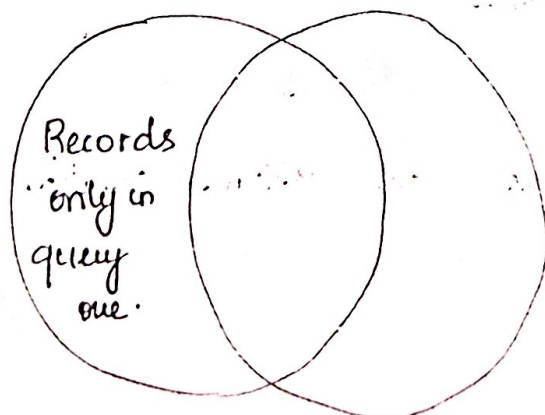 Records
only in
query
one.